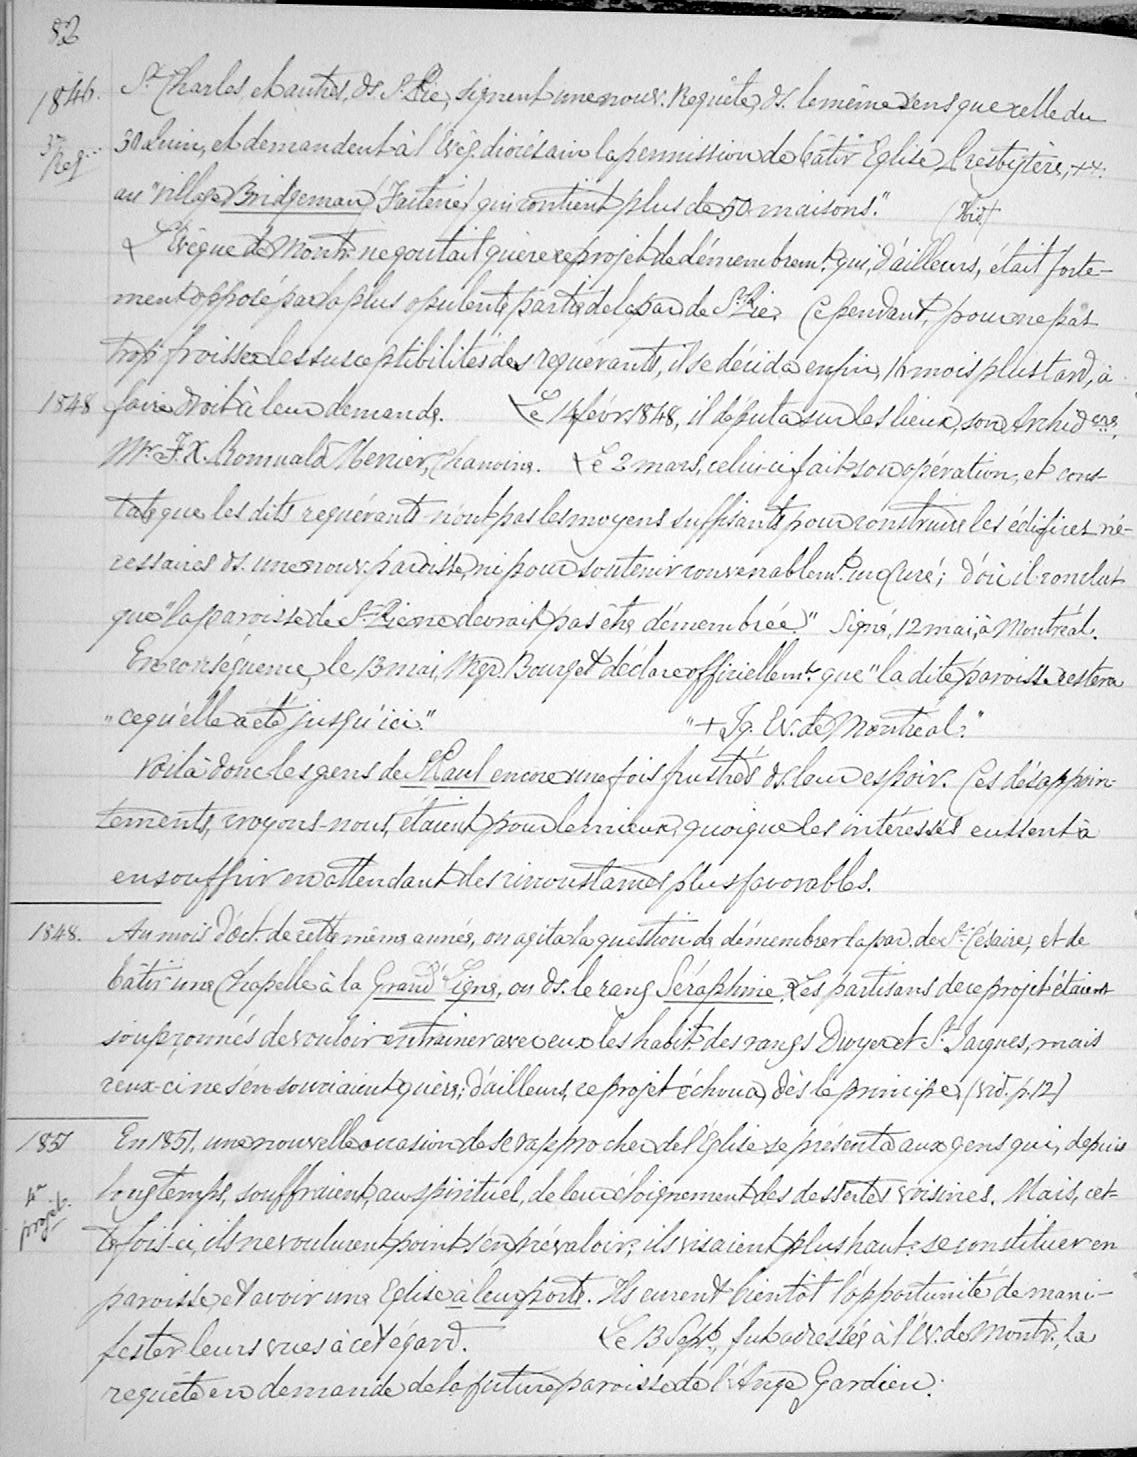 82
1846. St Charles, et autres, ds St Pie, signent une nouv. Requête, ds. le même sens que celle du
3me Req. 30 Juin, et demandent à l'Evêq. diocésain la permission de bâtir Eglise, Presbytère, ++.
au "village Bridgeman (Factorie) qui contient plus de 50 maisons." (Vid)
L'Evêque de Montr. ne goûtait guère ce projet de démembremt. qui, d'ailleurs, était forte-
ment opposé par la plus opulente partie de la par. de St Pie. Cependant, pour ne pas
trop froisser les susceptibilités des requérants, il se décida enfin, 16 mois plus tard, à
1848 faire droit à leur demande. Le 14 févr. 1848, il députa sur les lieux, son Archidcre,
Mr. F.X. Romuald Mercier, Chanoine. Le 2 mars, celui-ci fait son opération, et cons-
tate que les dits requérants n'ont pas les moyens suffisants pour construire les édifices né-
cessaires ds. une nouv. paroisse, ni pour soutenir convenablemt. un Curé; d'où il conclut
que "la paroisse de St Pie ne devrait pas être démembrée." Signé, 12 mai, à Montréal.
En conséquence, le 13 mai, Mgr. Bourget déclare officiellemt. que "la dite paroisse restera
"ce qu'elle a été jusqu'ici." "+ Ig. Ev. de Montréal."
Voilà donc les gens de St Paul encore une fois frustrés ds. leur espoir. Ces désappoin-
tements, croyons-nous, étaient pour le mieux, quoique les intéressés eussent à
en souffrir en attendant des circonstances plus favorables.
1848. Au mois d'Oct. de cette même année, on agita la question de démembrer la par. de St Césaire, et de
bâtir une Chapelle à la Grand'Ligne, ou ds. le rang Séraphine. Les partisans de ce projet étaient
soupçonnés de vouloir entraîner avec eux les habit. des rangs Dwyer et St Jacques, mais
ceux-ci ne s'en souciaient guère; d'ailleurs, ce projet échoua, dès le principe, (vid. p. 12)
1851 En 1851, une nouvelle occasion de se rapprocher de l'Eglise se présenta aux gens qui, depuis
4e projet. longtemps, souffraient, au spirituel, de leur éloignement des dessertes voisines. Mais, cet-
te fois-ci, ils ne voulurent point s'en prévaloir; ils visaient plus haut: se constituer en
paroisse, et avoir une Eglise à leur porte. Ils eurent bientôt l'opportunité de mani-
fester leurs vues à cet égard. Le 13 Sept., fut adressée à l'Ev. de Montr., la
requête en demande de la future paroisse de l'Ange Gardien.